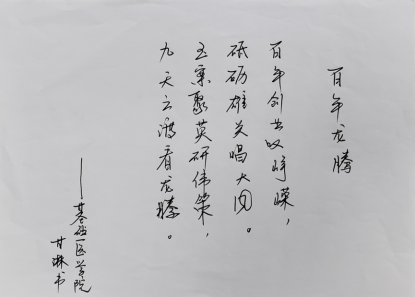 百年龙腾
百年创业叹峥嵘，
砥砺雄关唱大。
聚英研伟策，
九天云鸿看龙腾。
——基础医学院
甘琳书